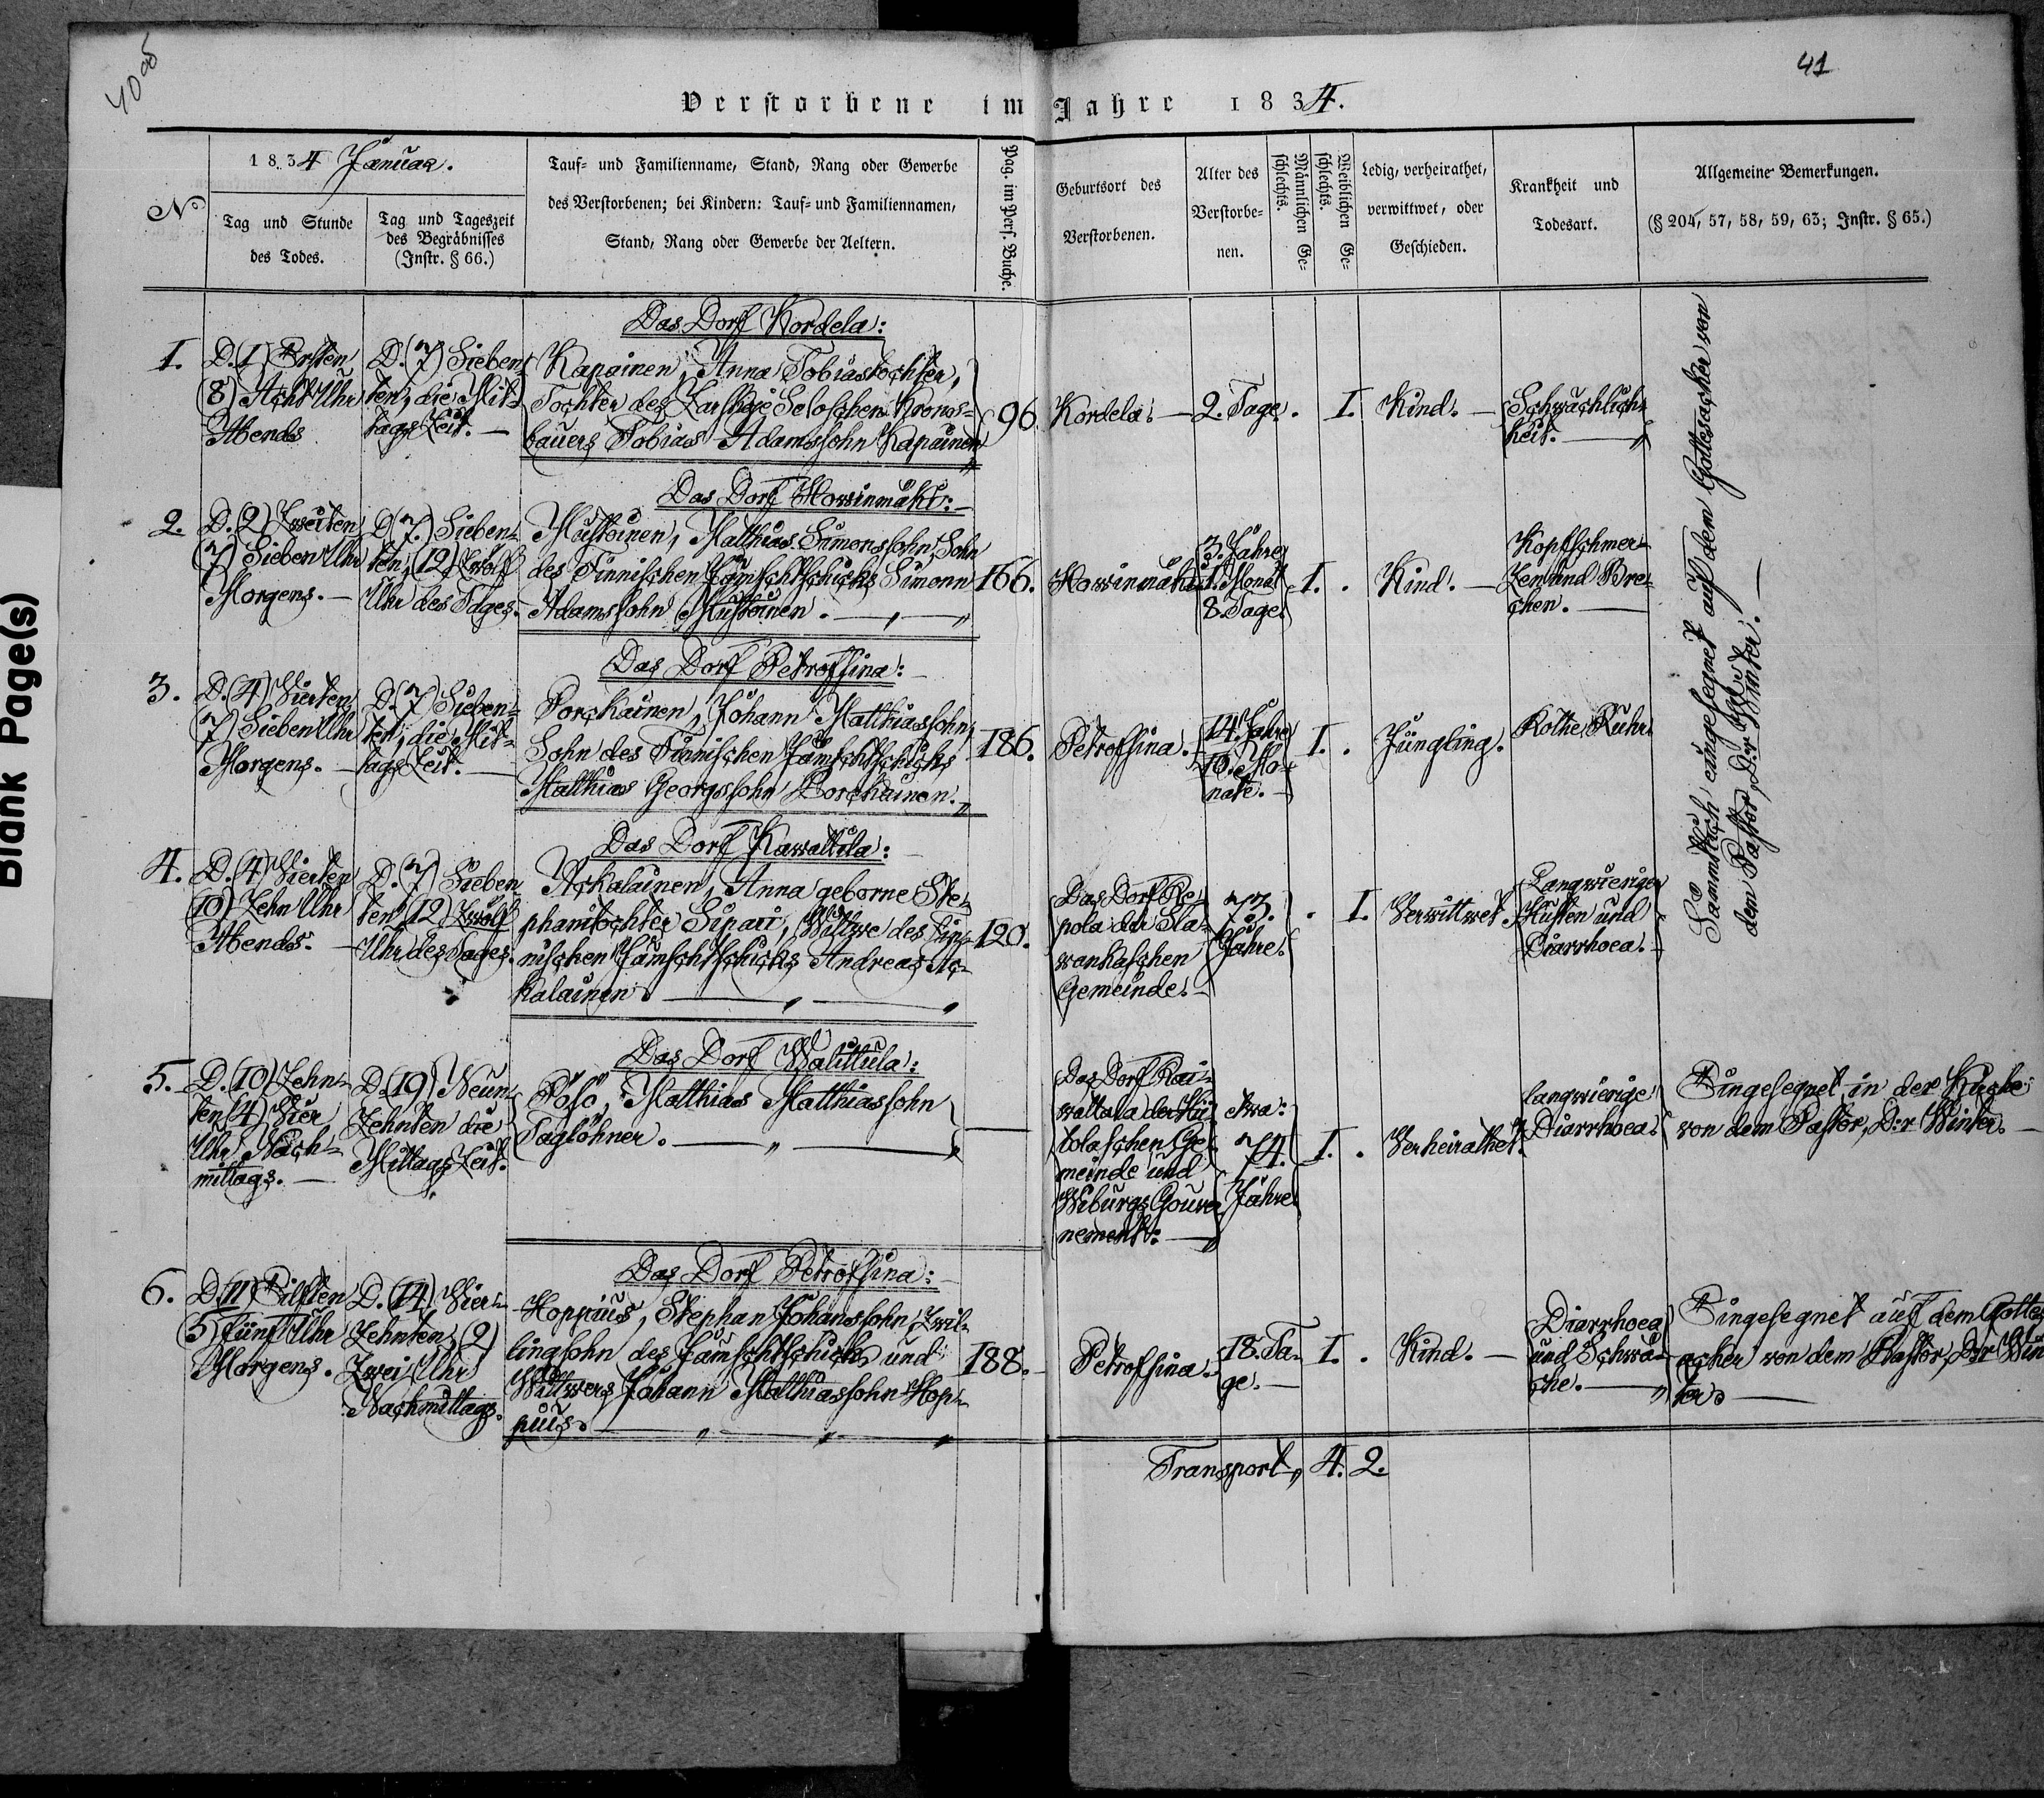 40 ob
41
Verstorbene im Jahre 1834.
No.
1834 Januar.
Tag und Stunde
des Todes.
Tag und Tageszeit
des Begräbnisses
(Instr. § 66.)
Tauf- und Familienname, Stand, Rang oder Gewerbe
des Verstorbenen; bei Kindern: Tauf- und Familiennamen,
Stand, Rang oder Gewerbe der Aeltern.
Pag. im Pers. Buche.
Geburtsort des
Verstorbenen.
Alter des
Verstorbe-
nen.
Männlichen Ge-
schlechts.
Weiblichen Ge-
schlechts.
Ledig, verheirathet,
verwittwet, oder
Geschieden.
Krankheit und
Todesart.
Allgemeine Bemerkungen.
(§ 204, 57, 58, 59, 63; Instr. § 65.)
Das Dorf Kordela:
1.
D.(1) Ersten
(8) Acht Uhr
Abends
D.(7) Sieben-
ten, die Mit-
tags Zeit. —
Kapainen, Anna Tobiastochter,
Tochter des Zarskoje Seloschen Krons-
bauers Tobias Adamssohn Kapainen
96.
Kordela. —
2. Tage.
I.
Kind. —
Schwächlich-
keit. —
Das Dorf Howinmäki: —
2.
D.(2) Zweiten
(7) Sieben Uhr
Morgens. —
D.(7.) Sieben-
ten, (12) Zwölf
Uhr des Tages.
Mustoinen, Matthias Simonssohn, Sohn
des Finnischen Jämschtschicks Simonn
Adamssohn Mustoinen. —
166.
Howinmäki
3. Jahre
1. Monat
8. Tage.
I. .
Kind. —
Kopfschmer-
zen und Bre-
chen. —
Das Dorf Petrofsina: —
3.
D.(4) Vierten
(7) Sieben Uhr
Morgens. —
D.(7) Sieben-
ten, die Mit-
tags Zeit. —
Porckainen, Johann Matthiassohn,
Sohn des Finnischen Jämschtschicks
Matthias Georgssohn Porckainen.
186.
Petrofsina.
14. Jahre
10. Mo-
nate. —
I. .
Jüngling.
Rothe Ruhr
Das Dorf Kawattila: —
4.
D.(4) Vierten
(10) Zehn Uhr
Abends. —
D.(7) Sieben
ten, (12) Zwölf
Uhr des Tages.
Ackalainen, Anna geborne Ste-
phanitochter Sipari, Wittwe des Fin-
nischen Jämschtschicks Andreas Ac-
kalainen. —
120.
Das Dorf Re-
pola der Sla-
wankaschen
Gemeinde. —
73.
Jahre.
. I.
Verwittwet.
Langwieriger
Husten und
Diarrhoea. —
Sämmtlich eingesegnet auf dem Gottesacker von
dem Pastor, D:r Winter. —
Das Dorf Walittula:
5.
D.(10) Zehn-
ten (4) Vier
Uhr Nach-
mittags. —
D.(19) Neun-
zehnten die
Mittags Zeit.
Pöso, Matthias Matthiassohn
Taglöhner. —
Das Dorf Rai-
wattala der Ki
tolaschen Ge-
meinde und
Wiburgs Gouver
nement. —
etwa:
74.
Jahre
I. .
Verheirathet.
langwierige
Diarrhoea.
Eingesegnet in der Kirche
von dem Pastor, D:r Winter. —
Das Dorf Petrofsina: —
6.
D.(11) Eilften
(5) Fünf Uhr
Morgens.
D.(14) Vier-
zehnten, (2)
Zwei Uhr
Nachmittags.
Hoppius, Stephan Johanssohn, Zwil-
lingsohn des Jämschtschicks und
Wittwers Johann Mathiassohn Hop-
pius. —
188. —
Petrofsina.
18. Ta-
ge. —
I. .
Kind. —
Diarrhoea
und Schwä-
che. —
Eingesegnet auf dem Gottes
acker von dem Pastor, D:r Win
ter. —
Transport, 4. 2.
Blank Page(s)